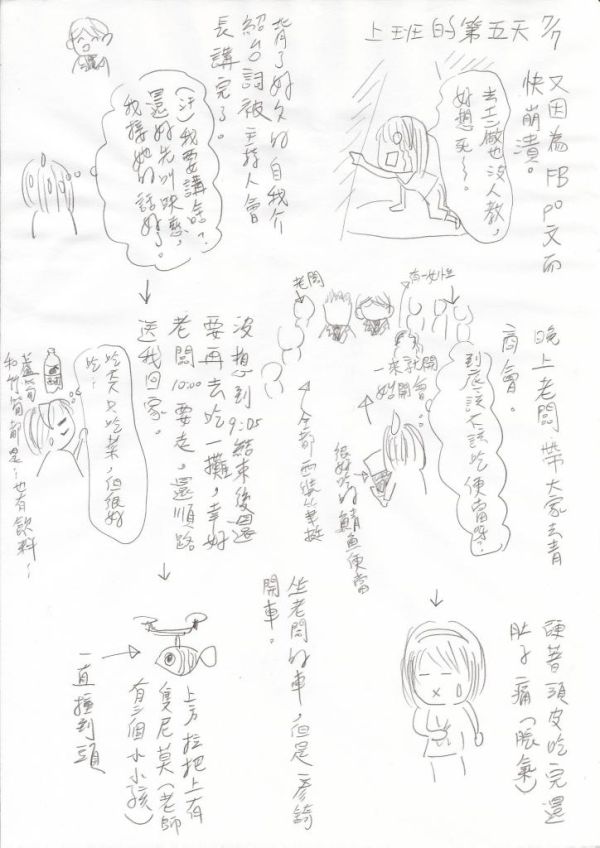 上班的第五天 7/7
又因為FB po文而
快崩潰。
去三做也沒人教,
好想死～。
晚上老闆帶大家去青
商會。
老闆
有一姊妹
一來就開
始開會
到底該不該吃
便當呀?
全都西裝筆挺
很好吃的鯖魚便當
硬著頭皮吃完還
肚子痛(脹氣)
坐老闆的車,但是
開車。
背了好久的自我介
紹台詞被主持人會
長講完了。
(汗)我要講啥?
還好先叫映慈,
我接她的話好了。
沒想到9:05結束後還
要再去吃一攤,幸好
老闆10:00要走,還順路
送我回家。
吃,
今天只吃菜,但很好
蘆筍
和竹筍都是～也有飲料～
上方拉把上有
隻尼莫(老師
有三個小小孩)
一直撞到頭